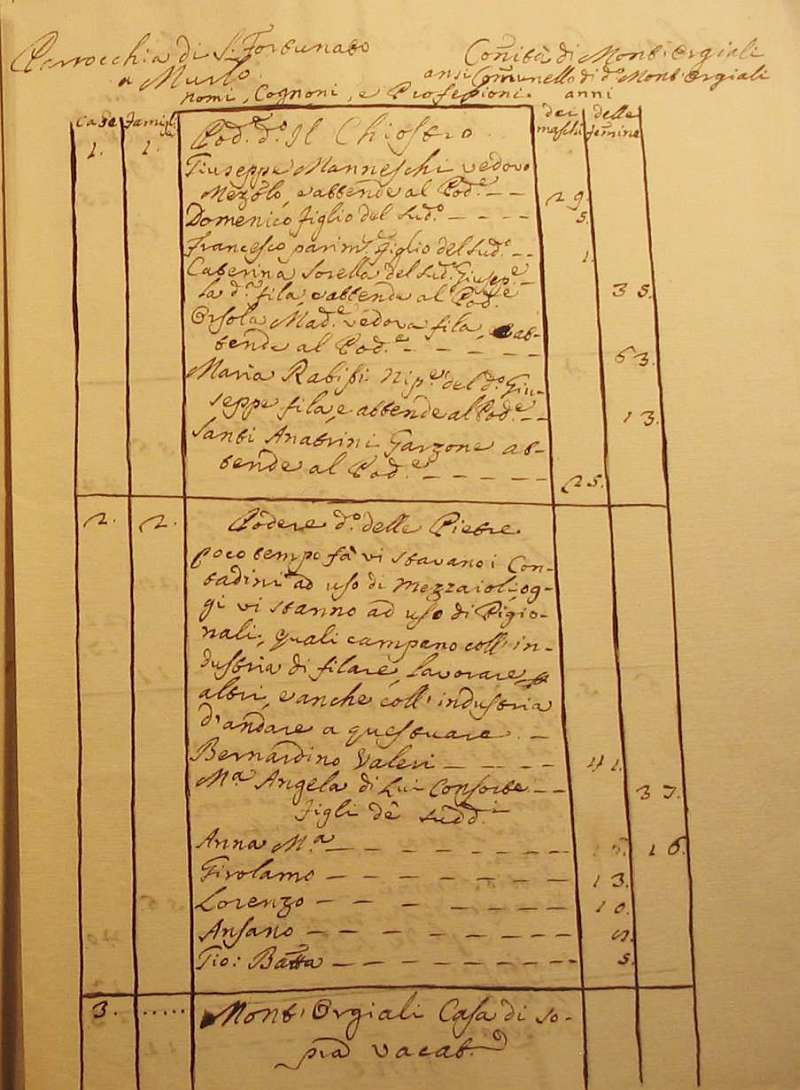 Parrocchia di S. Fortunato Com̃ità di Mont'Orgiali
a Murlo ansi Com̃unello di d.º Mont'Orgiali
Nomi, Cognomi, e Professioni. anni
Case famigl dei maschi delle femine
1. 1. Pod.e d.º Il Chiostro
Giuseppe Manneschi vedovo
Mezzolo, e attende al Pod.e 29.
Domenico figlio del Sud.º 5.
Francesco parim.e figlio del Sud.º 1.
Caterina Sorella del Sud.º Giusep.e
la d.a fila e attende al Pod.e 35.
Orsola Mad.e vedova fila, e at-
tende al Pod.e 63.
Maria Rabissi Nip.e del d.º Giu-
seppe fila, e attende al Pod.e 13.
Santi Anatrini Garzone at-
tende al Pod.e 25.
2. 2. Podere d.º delle Pietre
poco tempo fà vi stavano i Con-
tadini ad uso di Mezzaioli, og-
gi vi stanno ad uso di Pigio-
nali, quali campano coll'in-
dustria di filare, lavorare
altri, e anche coll'industria
d'andare a questuare.
Bernardino Valeri 41.
M.a Angela di Lui Consorte 37.
figli dè sudd.i
Anna M.a 16.
Girolamo 13.
Lorenzo 10.
Ansano
Gio: Batta 5.
3. ..... Mont'Orgiali Casa di so-
pra vacat.e